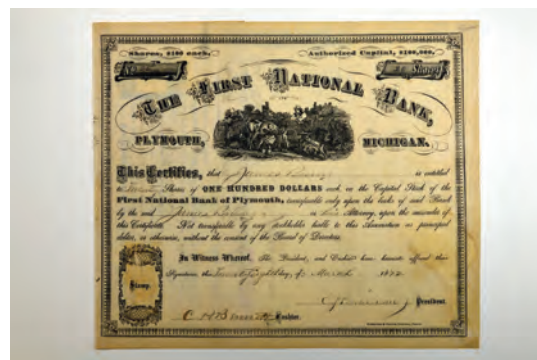 Shares, $100 each. Authorized Capital, $100,000.
Shares
THE FIRST NATIONAL BANK,
PLYMOUTH, MICHIGAN.
This Certifies, that James is entitled
to Twenty Shares of ONE HUNDRED DOLLARS each, in the Capital Stock of the
First National Bank of Plymouth, transferable only upon the books of said Board
by the said James or his Attorney, upon the surrender of
this Certificate. Not transferable by any stockholder liable to this Association as principal
debtor, or otherwise, without the consent of the Board of Directors.
In Witness Whereof, The President, and Cashier have hereunto affixed their
Signatures, this day of March 1872
Stamp.
President.
Cashier.